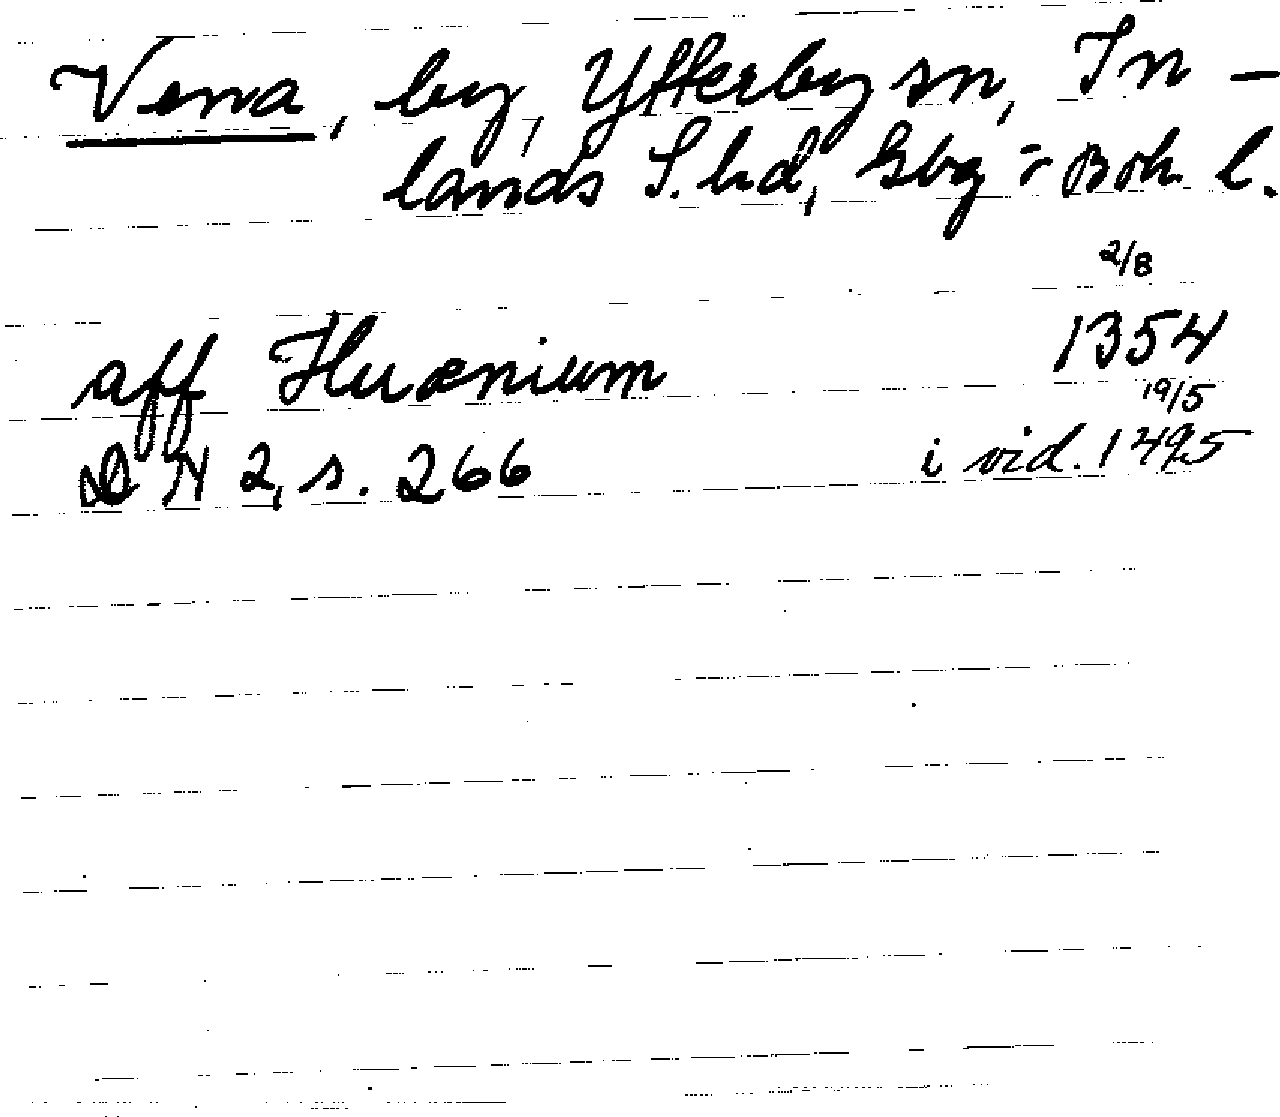 Vena, by, Ytterby sn, In-
lands S. hd, Gbg o Boh. l.
2/8
aff Huænium 1354
19/5
D N 2, s. 266 i vid. 1495